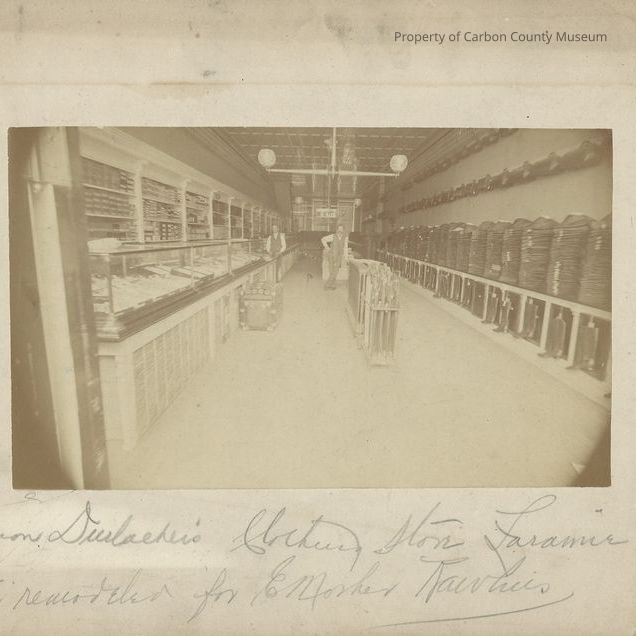 Property of Carbon County Museum
Durlacher's Clothing Store Laramie
remodeled for E Mosher Rawlins